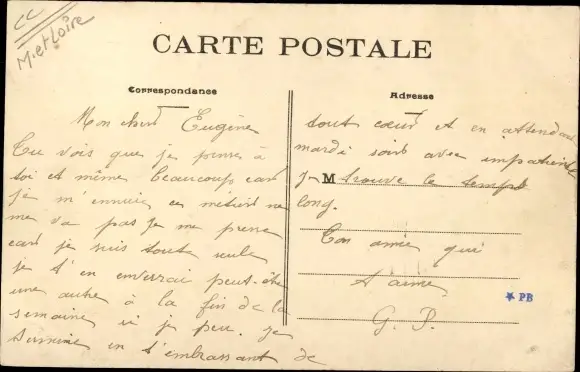 CC
M. et Loire
CARTE POSTALE
Correspondance
Adresse
Mon cher Eugène
Tu vois que je pense à
toi et même beaucoup car
je m'ennuie ce métier ne
me va pas je me
car je suis toute seule
je t'en enverrai peut-être
une autre à la fin de la
semaine si je peu. Je
termine en t'embrassant de
tout cœur et en attendant
mardi soir avec impatience
je M trouve le temps
long.
Ton amie qui
t'aime
G. P.
PB